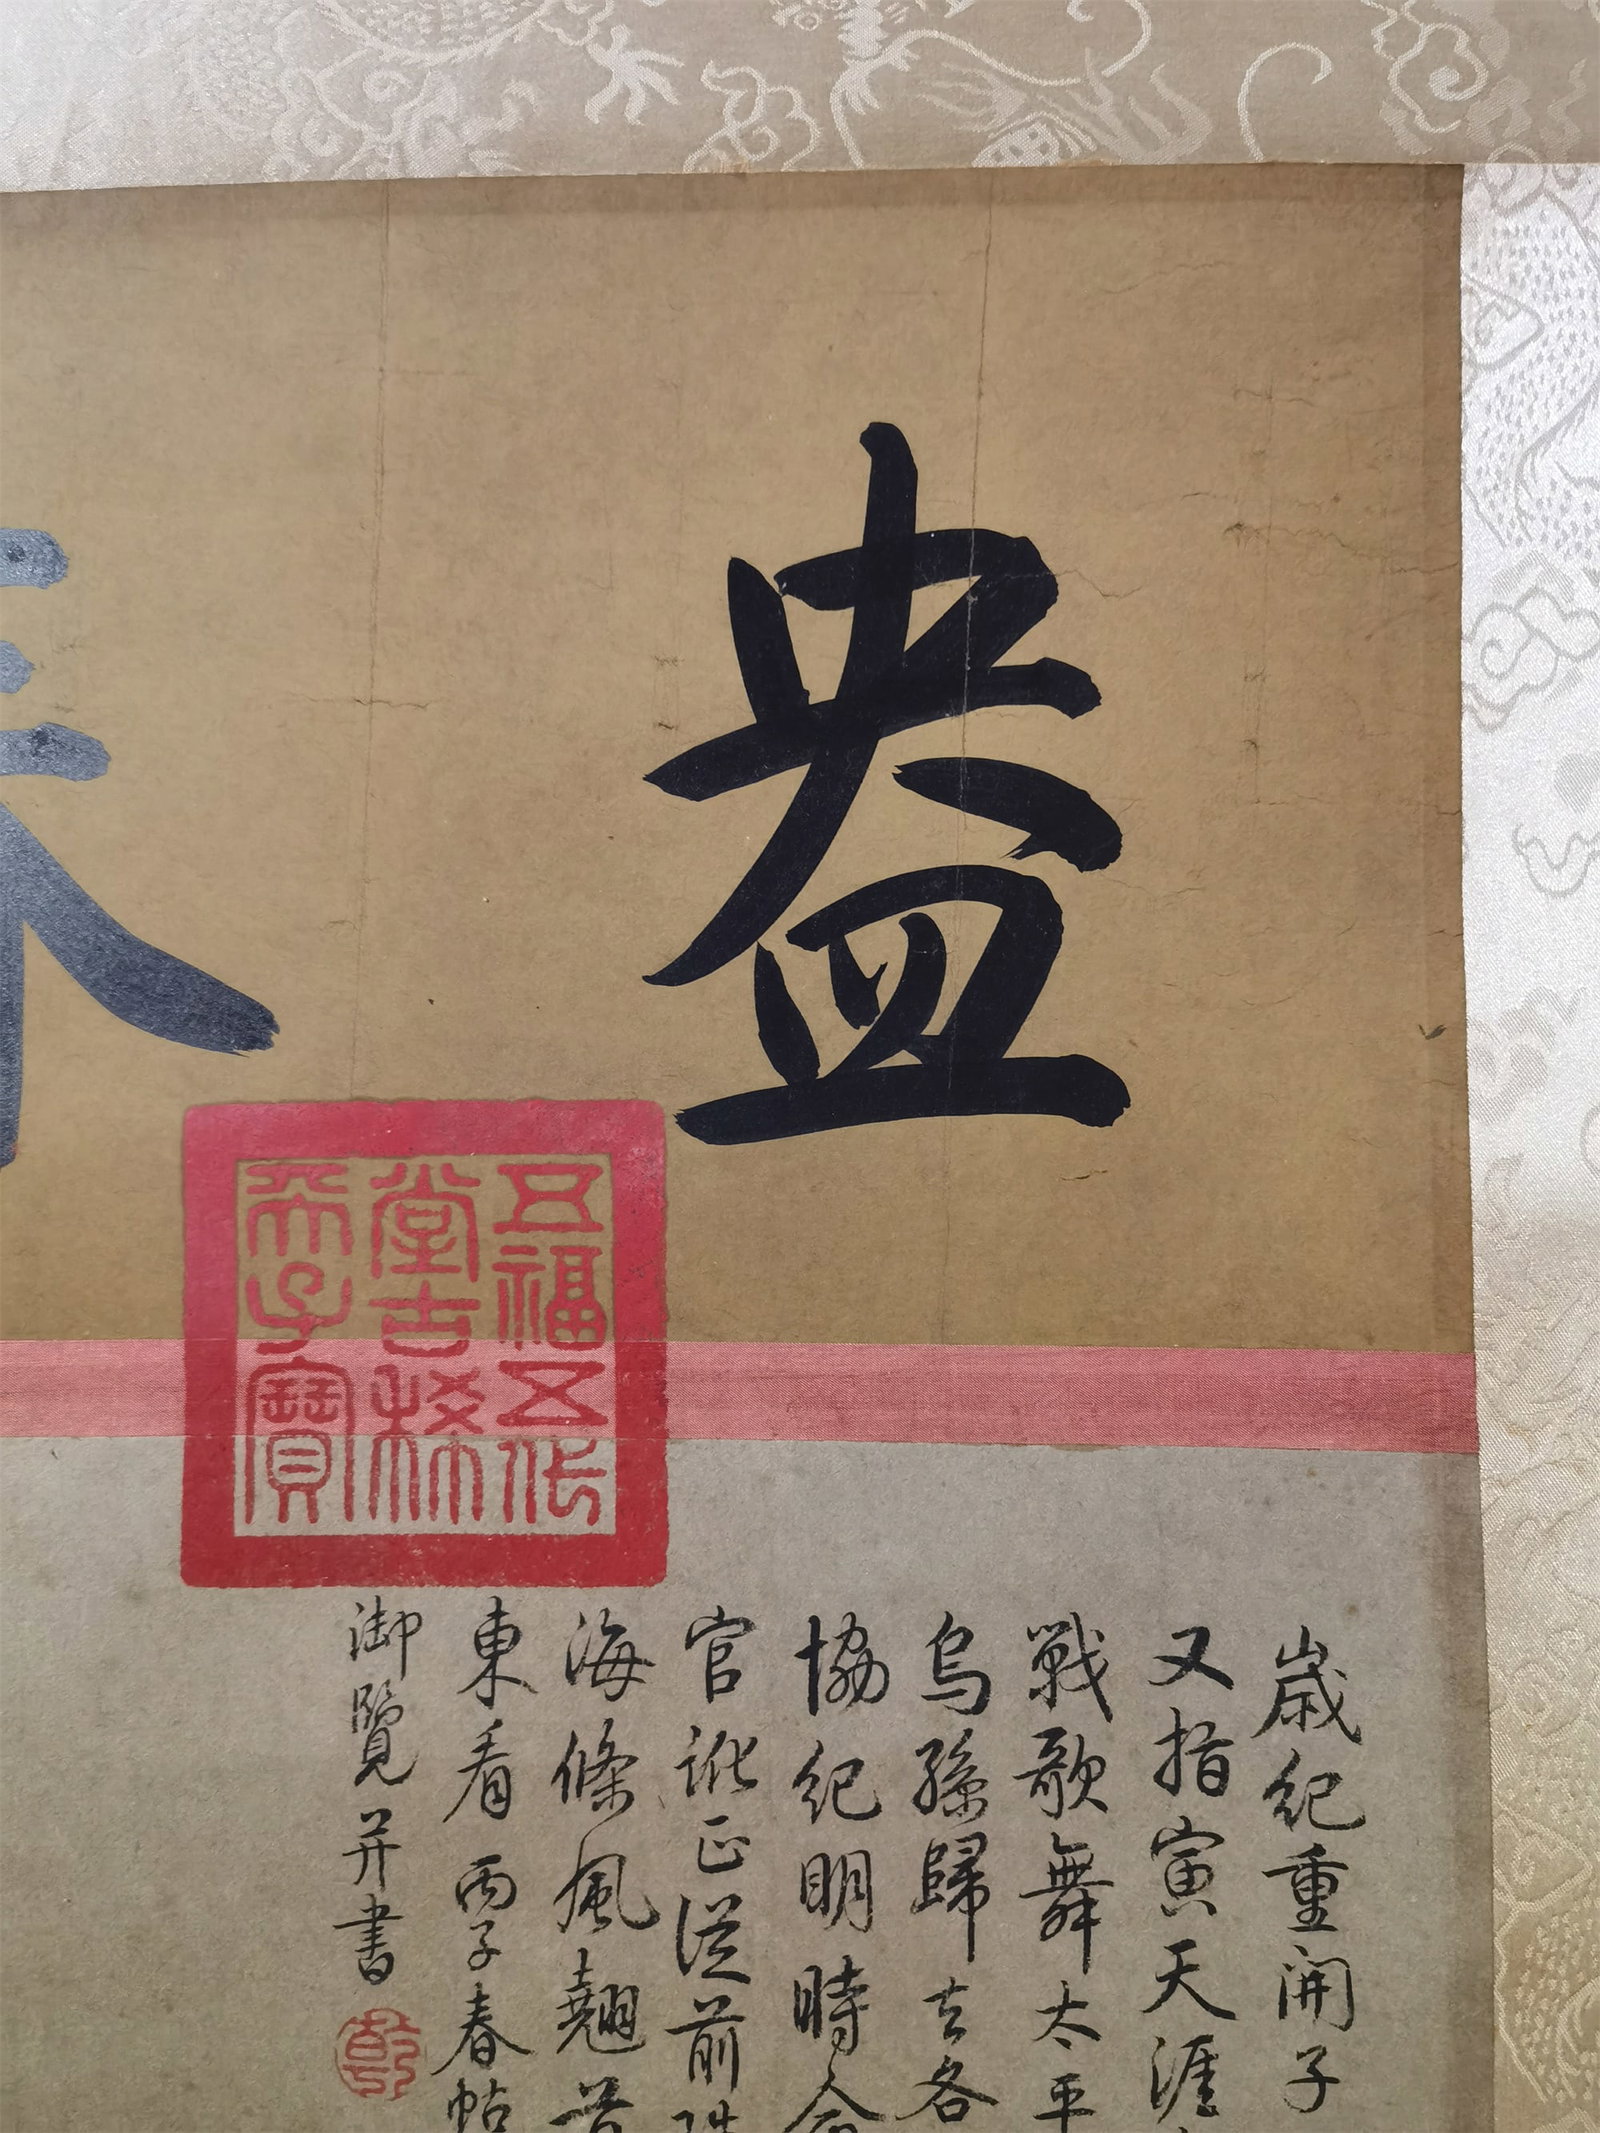 盎
春
五福五代
堂古稀
天子寶
歲紀重開子
又指寅天涯
戰歌舞太平
烏孫歸去各
協紀明時命
官訛正從前
海條風翹首
東看 丙子春帖
御覽并書
乾